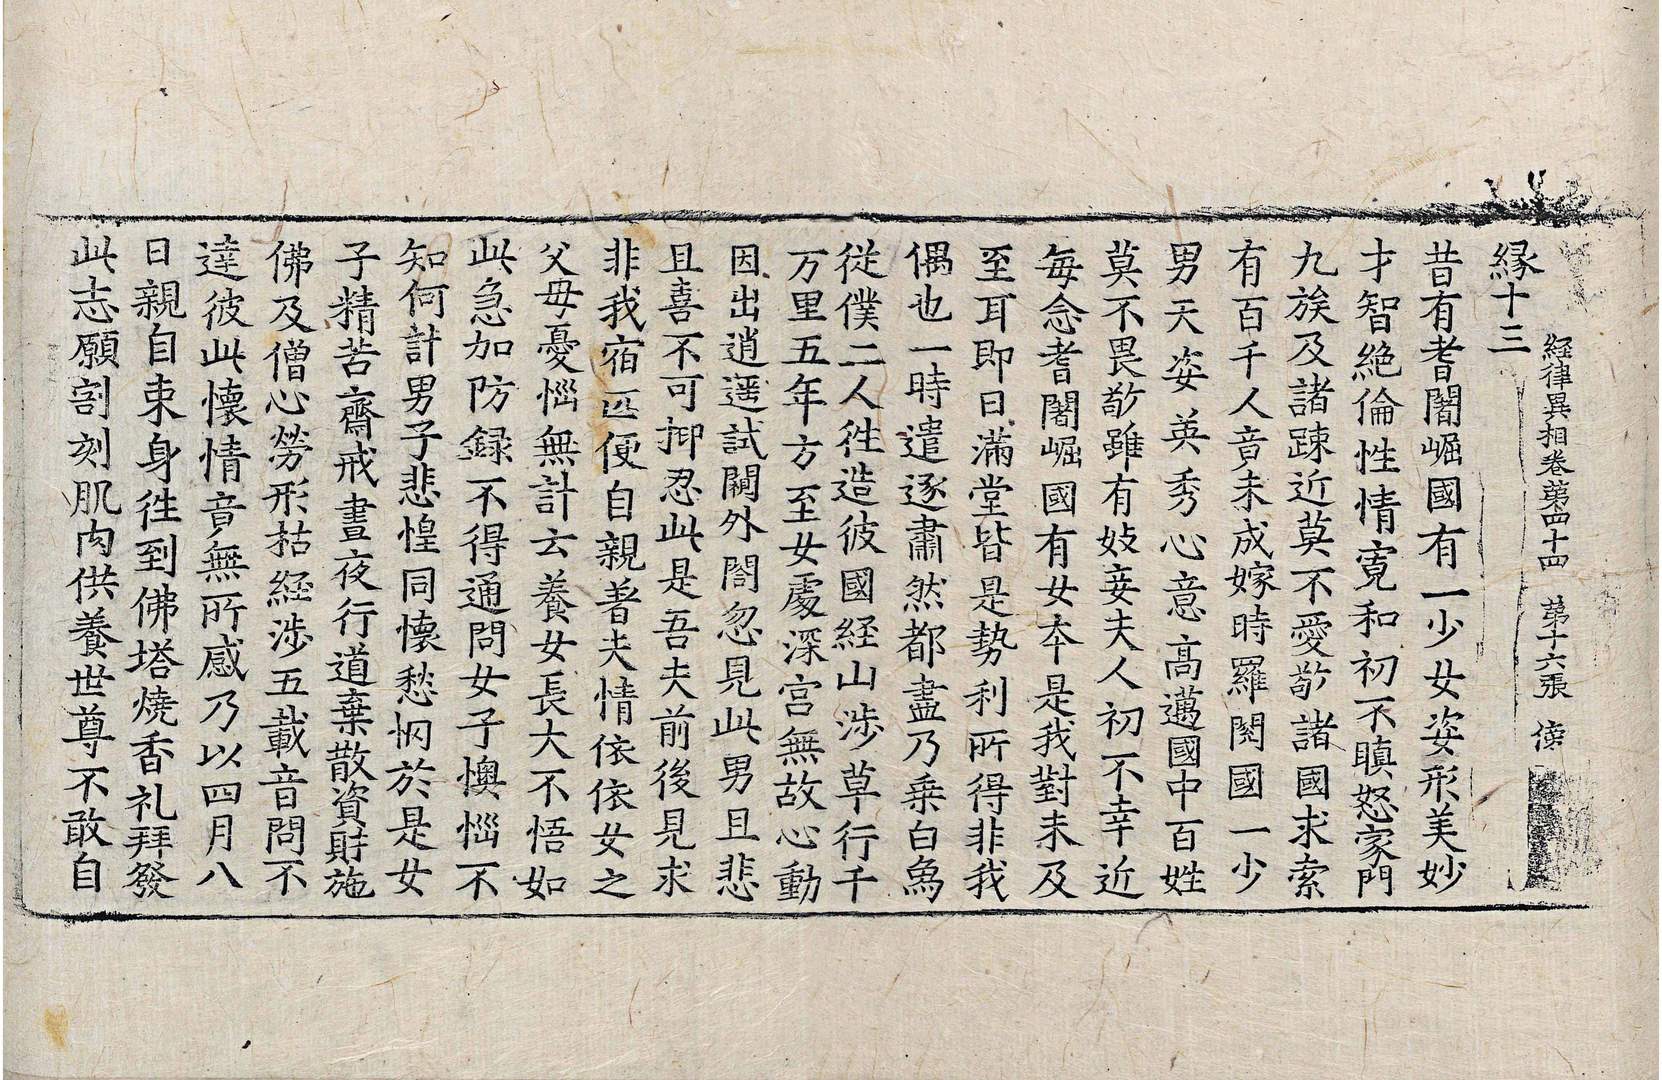 経律異相卷第四十四 第十六張
緣十三
昔有耆闍崛國有一少女姿形美妙
才智絶倫性情寬和初不瞋怒家門
九族及諸踈近莫不愛敬諸國求索
有百千人竟未成嫁時羅閱國一少
男天姿英秀心意高邁國中百姓
莫不畏敬雖有妓妾夫人初不幸近
每念耆闍崛國有女本是我對未及
至耳即日滿堂皆是勢利所得非我
偶也一時遣逐肅然都盡乃乗白馬
從僕二人徃造彼國経山渉草行千
万里五年方至女處深宫無故心動
因出逍遥試闚外閤忽見此男且悲
且喜不可抑忍此是吾夫前後見求
非我宿匹便自親著夫情依依女之
父母憂惱無計云養女長大不悟如
此急加防録不得通問女子懊惱不
知何計男子悲惶同懐愁惘於是女
子精苦齋戒晝夜行道棄散資財施
佛及僧心勞形枯経渉五載音問不
達彼此懐情竟無所感乃以四月八
日親自束身徃到佛塔燒香礼拜發
此志願割刻肌肉供養世尊不敢自